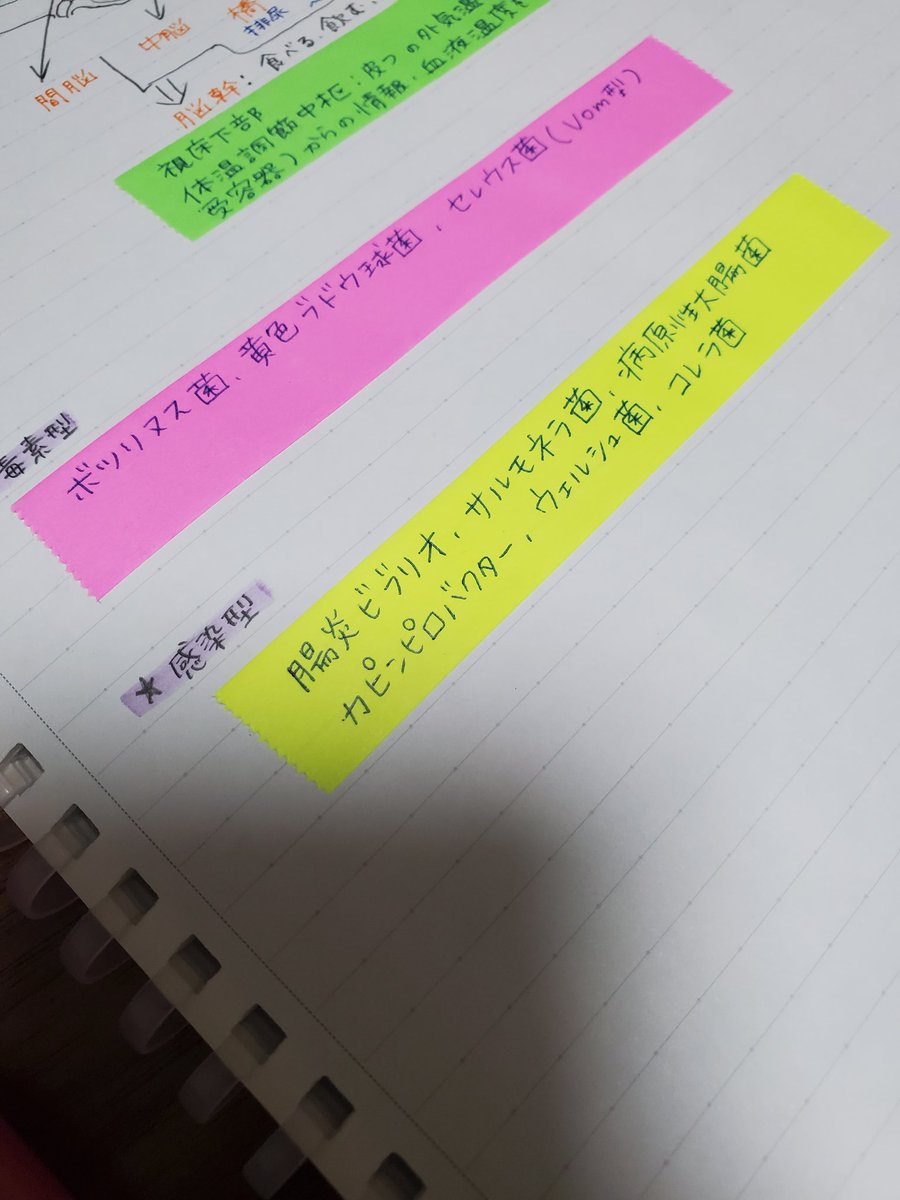 間脳
中脳
橋
排尿
脳幹：食べる、飲む、
視床下部
体温調節中枢：皮ふの外気温
受容器）からの情報、血液温度を
毒素型
ボツリヌス菌、黄色ブドウ球菌、セレウス菌（Vom型）
★感染型
腸炎ビブリオ、サルモネラ菌、病原性大腸菌
カピンピロバクター、ウェルシュ菌、コレラ菌